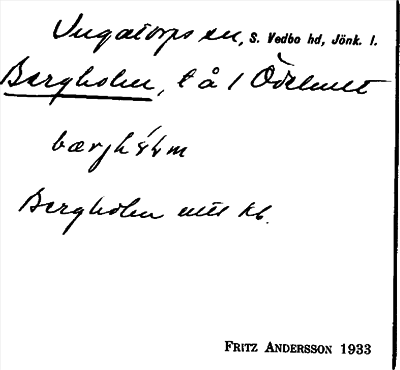 Ingatorps sn, S. Vedbo hd, Jönk. l.
Bergholm, t å 1 Ödehult
Bergholm enl kb.
FRITZ ANDERSSON 1933